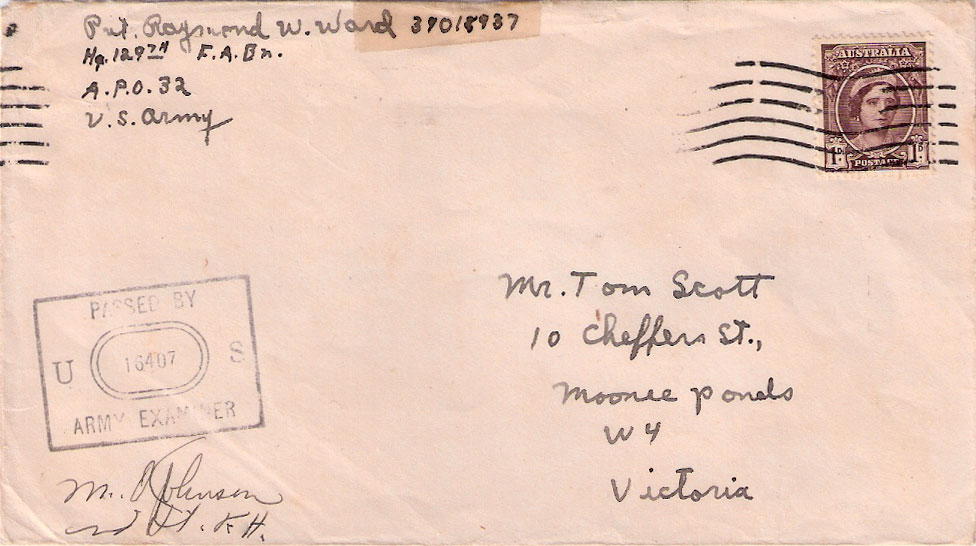 Pvt. Raymond W. Ward 39018937
Hq. 129TH F.A.Bn.
A.P.O. 32
U.S. Army
AUSTRALIA
1D 1D
POSTAGE
Mr. Tom Scott
10 Cheffers St.,
Moonee Ponds
W4
Victoria
PASSED BY
U 16407 S
ARMY EXAMINER
M. Johnson